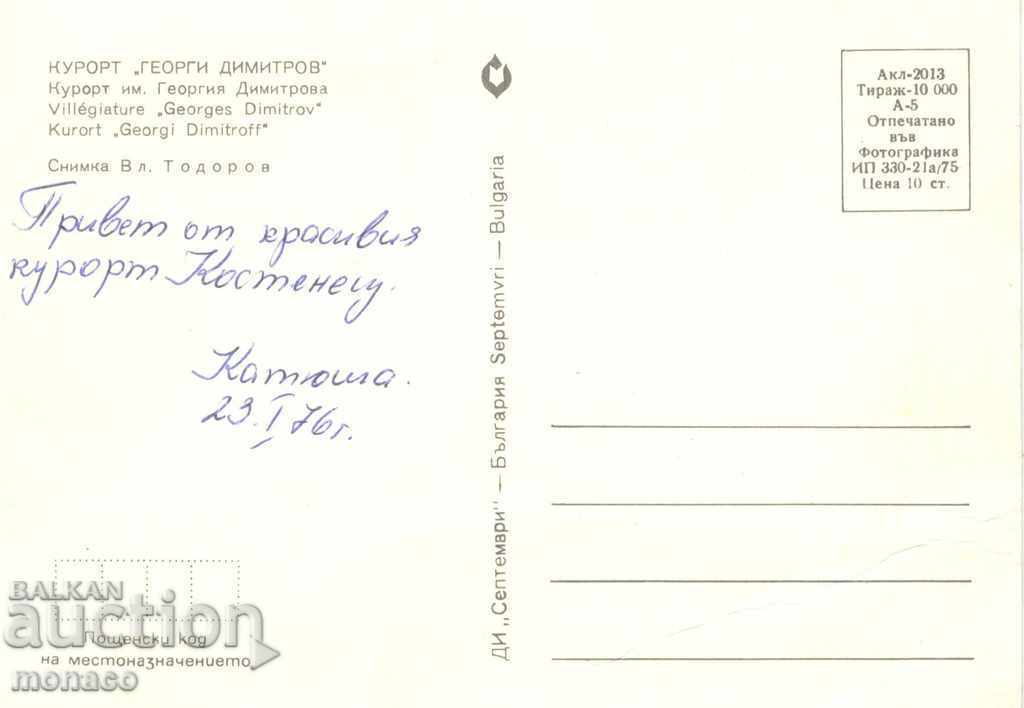 КУРОРТ „ГЕОРГИ ДИМИТРОВ"
Курорт им. Георгия Димитрова
Villégiature „Georges Dimitrov"
Kurort „Georgi Dimitroff"
Снимка Вл. Тодоров
Привет от красивия
курорт Костенец.
Катюша.
23.I.76г.
Пощенски код
на местоназначението
ДИ „Септември" — България Septemvri — Bulgaria
Акл-2013
Тираж-10 000
А-5
Отпечатано
във
Фотографика
ИП 330-21а/75
Цена 10 ст.
BALKAN
auction
monaco